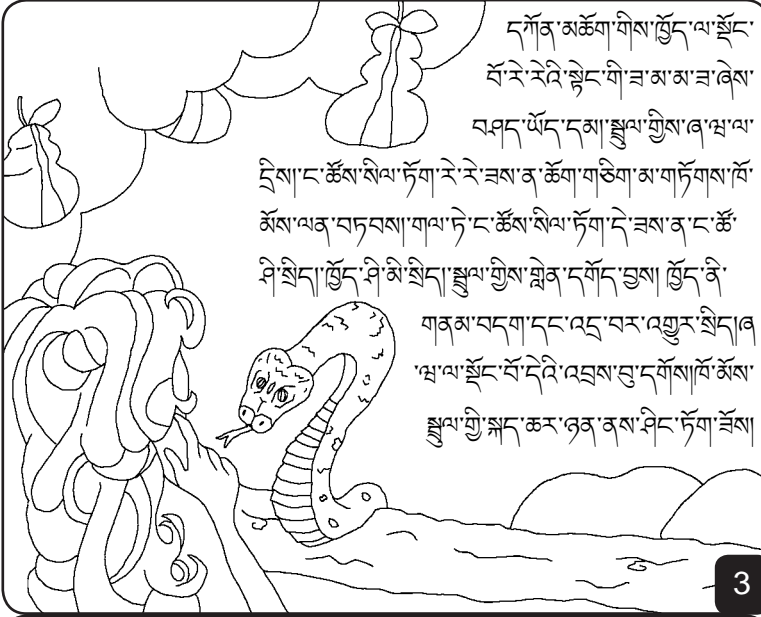 དཀོན་མཆོག་གིས་ཁྱོད་ལ་སྡོང་
བོ་རེ་རེའི་སྟེང་གི་ཟ་མ་མ་ཟ་ཞེས་
བཤད་ཡོད་དམ།སྦྲུལ་གྱིས་ཞ་ཝ་ལ་
དྲིས།ང་ཚོས་སིལ་ཏོག་རེ་རེ་ཟས་ན་ཆོག་གཅིག་མ་གཏོགས་ཁོ་
མོས་ལན་བཏབས།གལ་ཏེ་ང་ཚོས་སིལ་ཏོག་དེ་ཟས་ན་ང་ཚོ་
ཤི་སྲིད།ཁྱོད་ཤི་མི་སྲིད།སྦྲུལ་གྱིས་གླེན་དགོད་བྱས། ཁྱོད་ནི་
གནམ་བདག་དང་འདྲ་བར་འགྱུར་སྲིད།ཞ
་ཝ་ལ་སྡོང་བོ་དེའི་འབྲས་བུ་དགོས།ཁོ་མོས་
སྦྲུལ་གྱི་སྐད་ཆར་ཉན་ནས་ཤིང་ཏོག་ཟོས།
3